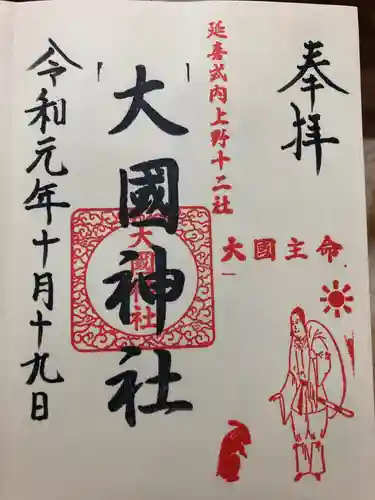 奉拝
延喜式内上野十二社
大國主命
大國神社
大國神社
令和元年十月十九日